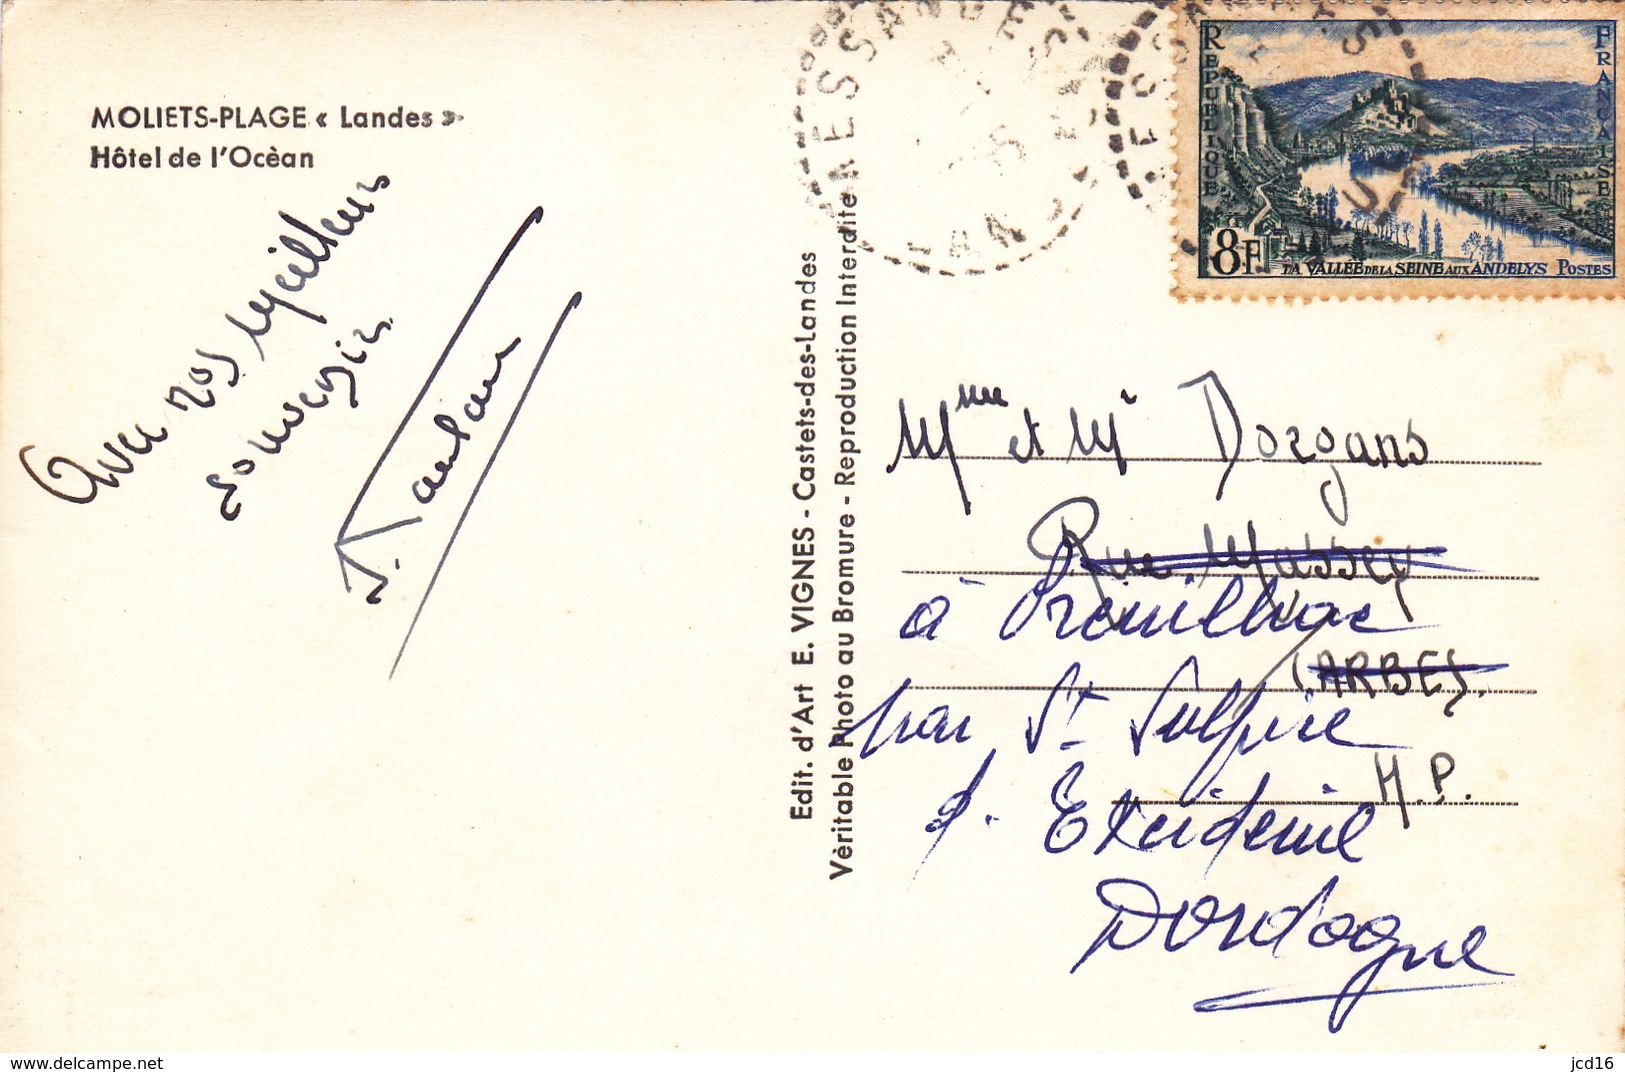 MOLIETS-PLAGE « Landes »
Hôtel de l'Ocèan
Avec nos meilleurs
souvenirs
Edit. d'Art E. VIGNES - Castets-des-Landes
Vèritable Photo au Bromure - Reproduction Interdite
MESSANGES
LANDES
REPUBLIQUE
FRANÇAISE
8F
LA VALLÉE DE LA SEINE AUX ANDELYS POSTES
Mme et Mr Dorgans
Rue Massey
à Preuilhac
TARBES.
par St Sulpice
H.P.
d. Excideuil
Dordogne
www.delcampe.net
jcd16